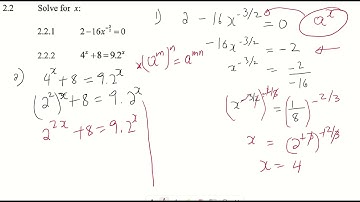 2.2 Solve for x:
2.2.1 2 − 16x^{-3/2} = 0
2.2.2 4^x + 8 = 9.2^x
1) 2 − 16x^{-3/2} = 0
a^x
−16x^{-3/2} = −2
x^{-3/2} = -2/-16
(x^{-3/2})^{-2/3} = (1/8)^{-2/3}
x = (2^{+3})^{+2/3}
x = 4
x(a^m)^n = a^{mn}
2) 4^x + 8 = 9.2^x
(2^2)^x + 8 = 9.2^x
2^{2x} + 8 = 9.2^x